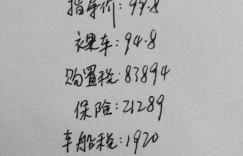 指导价:99.8
裸车:94.8
购置税:83894
保险:21289
车船税:1920